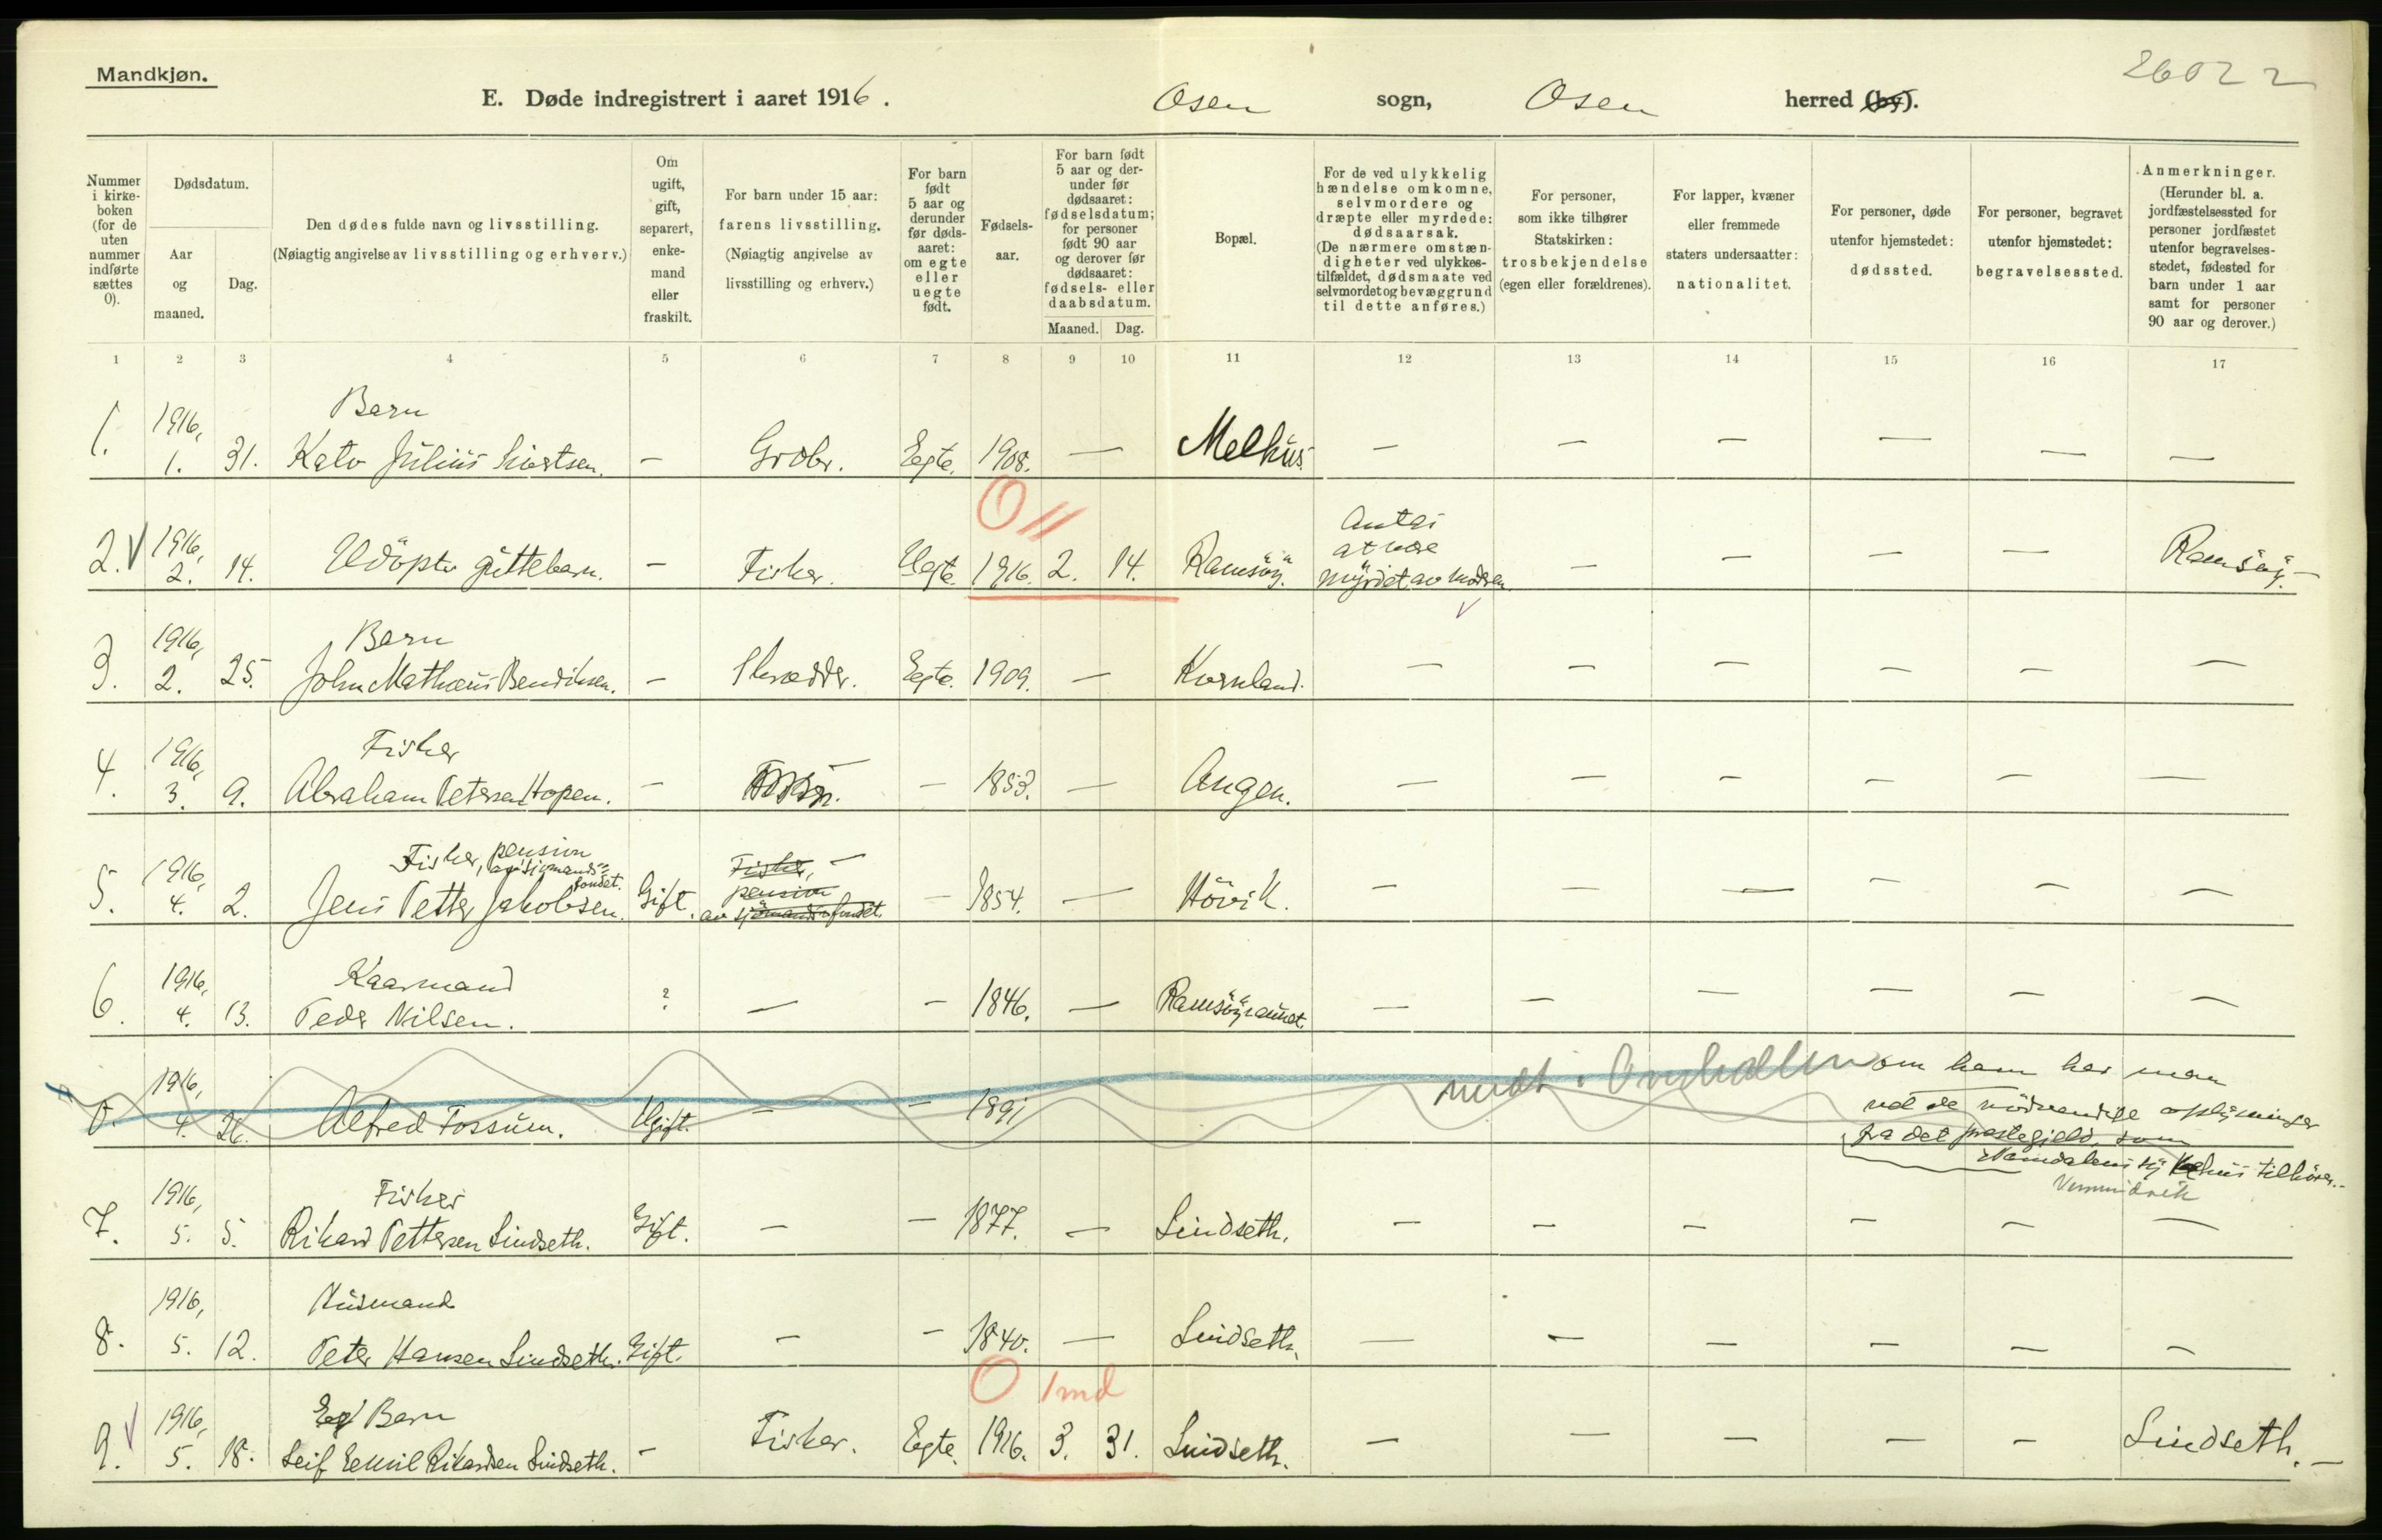 Mandkjøn.
26022
E. Døde indregistrert i aaret 1916. Osen sogn, Osen herred (by).
Nummer i kirkeboken (for de uten nummer indførte sættes 0).
Dødsdatum.
Aar og maaned.
Dag.
Den dødes fulde navn og livsstilling.
(Nøiagtig angivelse av livsstilling og erhverv.)
Om ugift, gift, separert, enkemand eller fraskilt.
For barn under 15 aar: farens livsstilling.
(Nøiagtig angivelse av livsstilling og erhverv.)
For barn født 5 aar og derunder før dødsaaret: om egte eller uegte født.
Fødselsaar.
For barn født 5 aar og derunder før dødsaaret: fødselsdatum; for personer født 90 aar og derover før dødsaaret: fødsels- eller daabsdatum.
Maaned. Dag.
Bopæl.
For de ved ulykkelig hændelse omkomne, selvmordere og dræpte eller myrdede: dødsaarsak.
(De nærmere omstændigheter ved ulykkestilfældet, dødsmaate ved selvmordet og bevæggrund til dette anføres.)
For personer, som ikke tilhører Statskirken: trosbekjendelse (egen eller forældrenes).
For lapper, kvæner eller fremmede staters undersaatter: nationalitet.
For personer, døde utenfor hjemstedet: dødssted.
For personer, begravet utenfor hjemstedet: begravelsessted.
Anmerkninger.
(Herunder bl. a. jordfæstelsessted for personer jordfæstet utenfor begravelsesstedet, fødested for barn under 1 aar samt for personer 90 aar og derover.)
1 2 3 4 5 6 7 8 9 10 11 12 13 14 15 16 17
1916, Barn
1. 1. 31. Kato Julius Sivertsen. — Grdbr. Egte. 1908. — Melhus — — — — — —
0 11
1916, Antas at være
2. 2. 14. Udöpte guttebarn. — Fisker. Uegte. 1916. 2. 14. Ramsöy. myrdet av moderen — — — — Ramsöy. —
1916, Barn
3. 2. 25. John Mathæus Bendiksen. — Skrædder. Egte. 1909. — Kvernland. — — — — — —
1916, Fisker
4. 3. 9. Abraham Petersen Hopen. — — — 1853. — Angen. — — — — — —
1916, Fisker, pension av sjömandsfondet. Fisker, — pension
5. 4. 2. Jens Petter Jakobsen. Gift. av sjömandsfondet. — 1854. — Hövik. — — — — — —
1916, Kaarmand
6. 4. 13. Peder Nilsen. ? — — 1846. — Ramsöyaunet. — — — — — —
1916,
0. 4. 26. Alfred Fossum. Ugift. — — 1891 om ham har man
nødvendige oplysninger
fra det prestegjeld, som
Namdalens sykehus tilhörer. —
1916, Fisker
7. 5. 5. Rikard Pettersen Lindseth. Gift. — — 1877. — Lindseth. — — — — — —
1916, Husmand
8. 5. 12. Peter Hansen Lindseth. Gift. — — 1840. — Lindseth. — — — — — —
0 1 md
1916, Barn
9. 5. 18. Leif Eemil Rikardsen Lindseth. — Fisker. Egte. 1916. 3. 31. Lindseth. — — — — — Lindseth. —